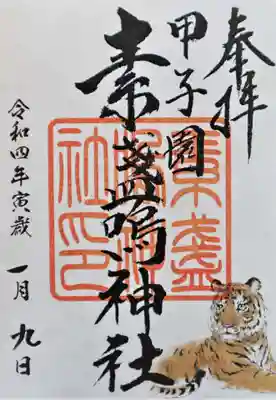 奉拝
甲子園
素盞嗚神社
令和四年寅歳
一月九日
素盞
嗚神
社印